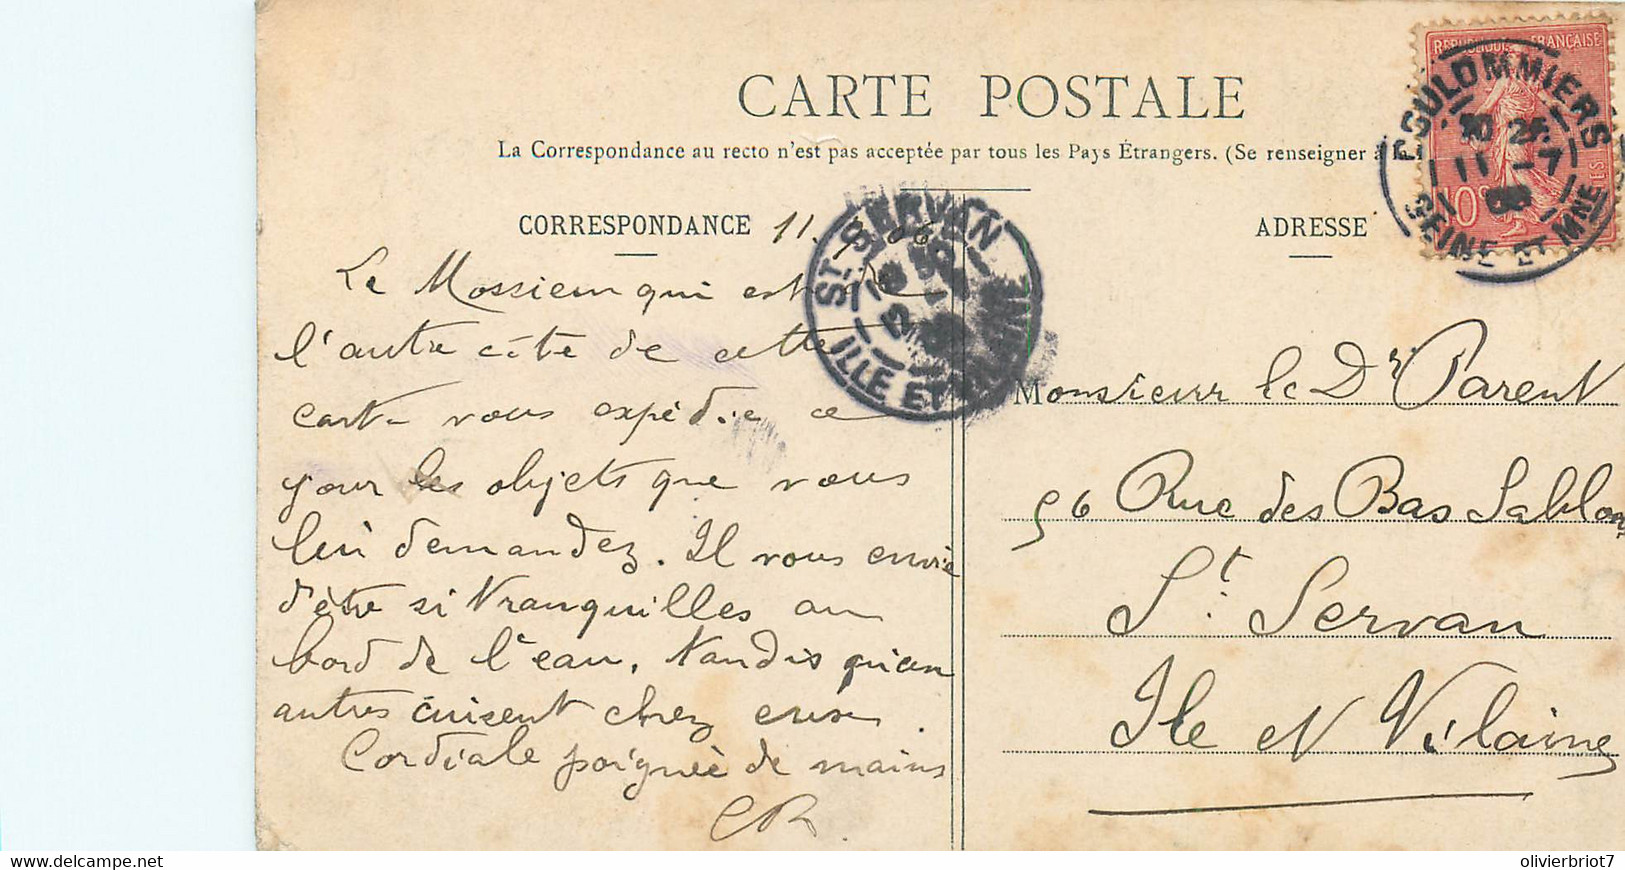 CARTE POSTALE
La Correspondance au recto n'est pas acceptée par tous les Pays Étrangers. (Se renseigner à
CORRESPONDANCE
ADRESSE
11. 7. 06
Le Monsieur qui est de
l'autre côté de cette
carte vous expédie ce
jour les objets que vous
lui demandez. Il vous envie
d'être si tranquilles au
bord de l'eau, tandis qu'ici
autres cuisent chez eux.
Cordiale poignée de mains
CR.
Monsieur le Dr Parent
56 Rue des Bas Sablons
St. Servan
Ile et Vilaine
REPUBLIQUE FRANÇAISE
10c
COULOMMIERS
11 -7
SEINE ET MNE
ST SERVAN
ILLE ET VILAINE
olivierbriot7